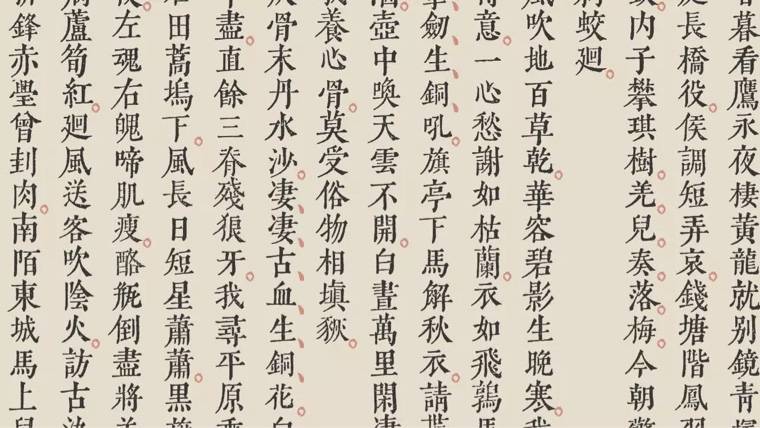 暮看鷹永夜棲黃龍就别鏡青
長橋役。侯調短弄哀。錢塘階鳳
内子攀琪樹。羌兒。奏落梅。今朝
蛟廻。
風吹地百草乾。華容碧影生晚寒。我
意。一心愁謝如枯蘭。衣如飛鶉馬
劒、生、銅、吼。旗亭下馬解秋衣。請
壺中喚天雲不開。白晝萬里閑凄
養心骨。莫受俗物相塡豥。
骨末丹水沙。凄、凄、古、血、生、銅、花。白
盡。直餘三脊殘狼牙。我尋平原乘
田蒿塢下。風長日短星蕭蕭。黑旗
左魂右魄啼肌瘦。酪瓶倒盡將羊
蘆筍紅。廻風送客吹陰火。訪古
鋒赤璺曾刲肉。南陌東城馬上